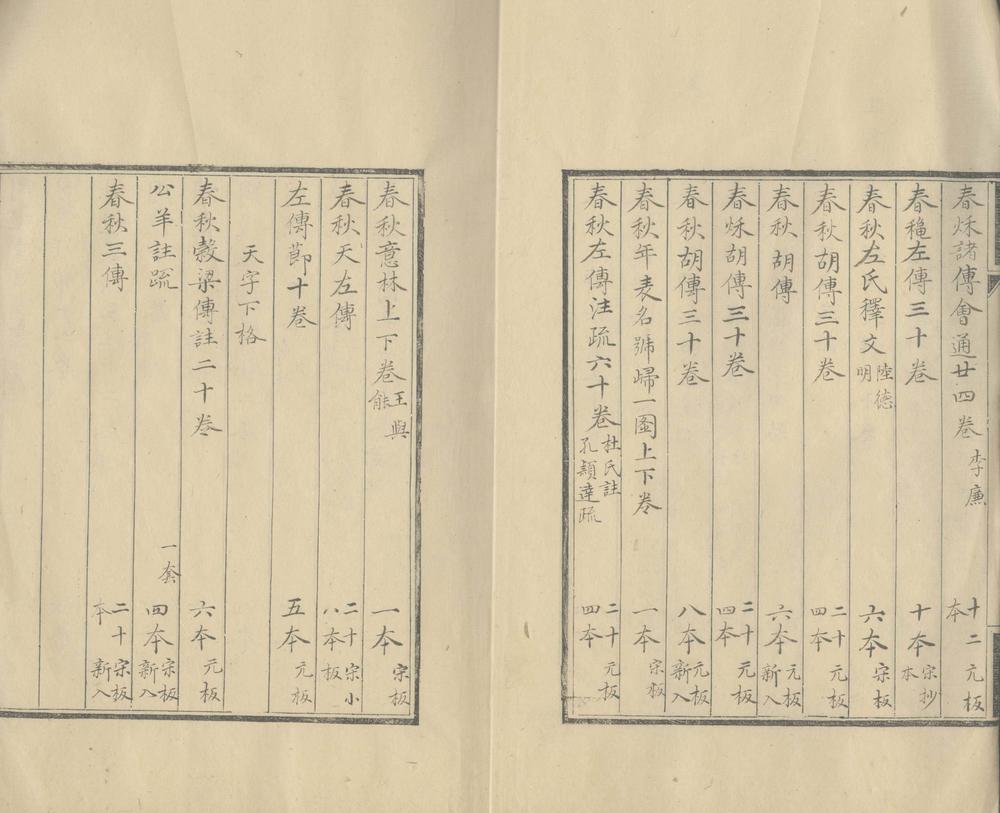 春秌諸傳會通廿四卷 李廉 十二本 元板
春穐左傳三十卷 十本 宋抄本
春秋左氏釋文 陸德明 六本 宋板
春秋胡傳三十卷 二十四本 元板
春秋胡傳 六本 元板新入
春秌胡傳三十卷 二十四本 元板
春秋胡傳三十卷 八本 元板新入
春秋年表名號歸一圖上下卷 一本 宋板
春秋左傳注疏六十卷 杜氏註孔穎達疏 二十四本 元板
春秋意林上下卷 王與能 一本 宋板
春秋天左傳 二十八本 宋小板
左傳節十卷 五本 元板
天字下格
春秋穀梁傳註二十卷 六本 元板
公羊註疏 一套 四本 宋板新入
春秋三傳 二十本 宋板新入